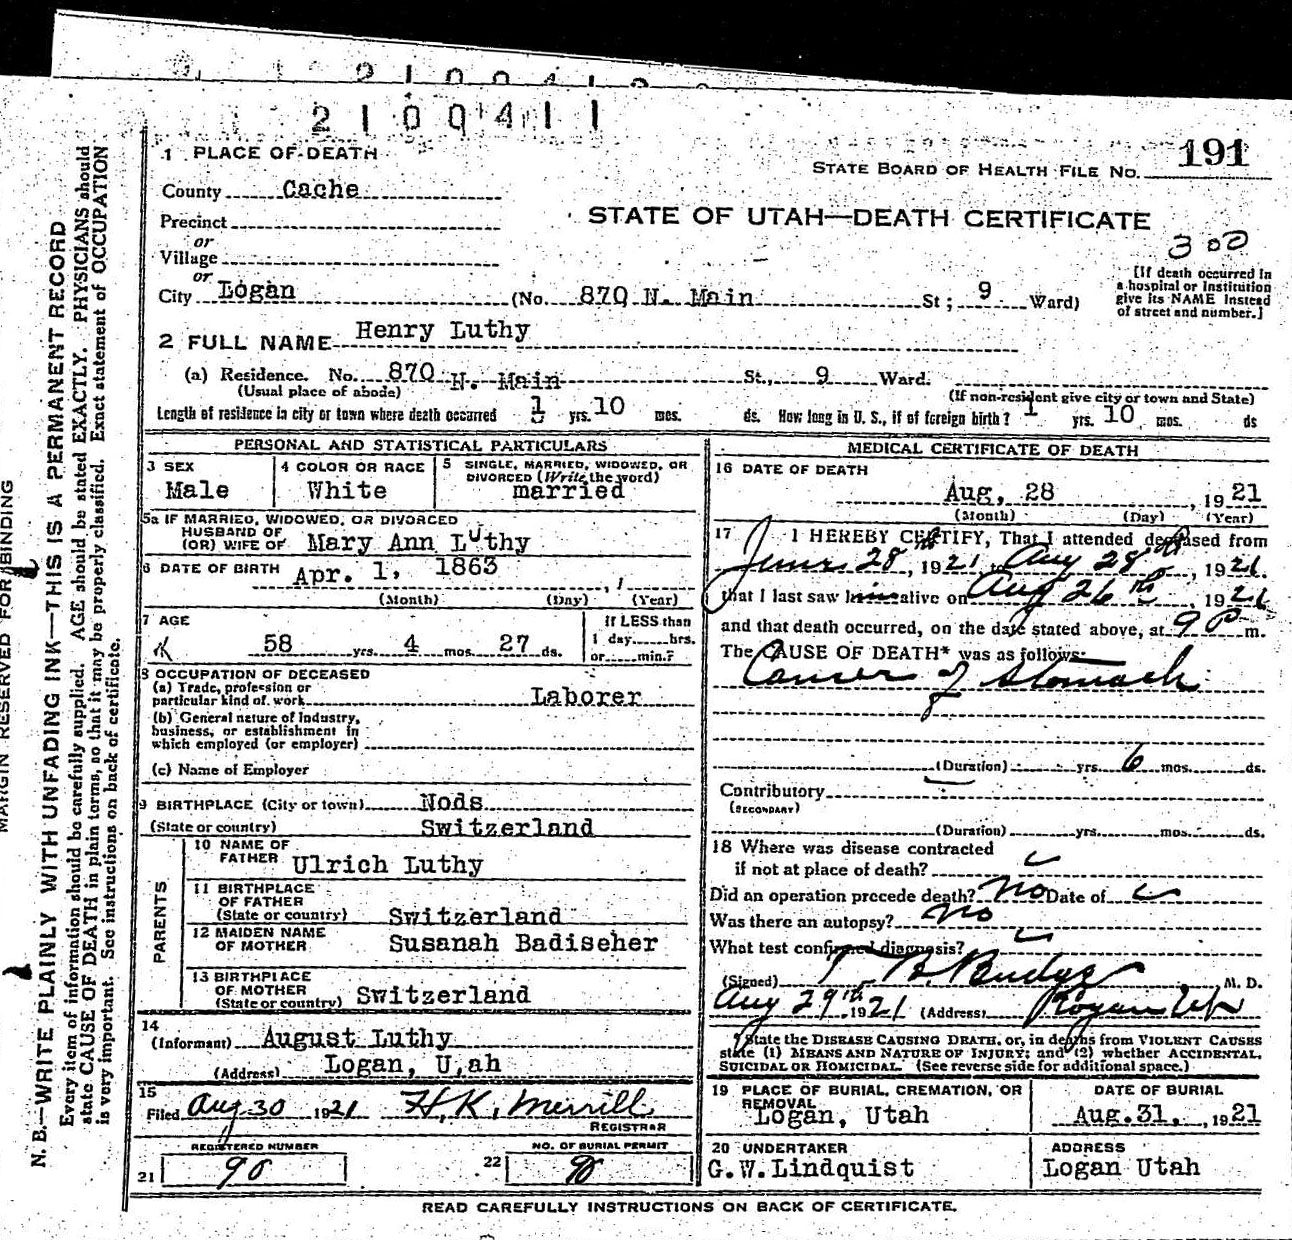 2100411
1 PLACE OF DEATH
STATE BOARD OF HEALTH FILE NO. 191
County Cache
STATE OF UTAH—DEATH CERTIFICATE
Precinct
or
Village
300
or
City Logan (No. 870 N. Main St; 9 Ward)
[If death occurred in a hospital or Institution give its NAME instead of street and number.]
2 FULL NAME Henry Luthy
(a) Residence. No. 870 N. Main St., 9 Ward.
(Usual place of abode) (If non-resident give city or town and State)
Length of residence in city or town where death occurred 1 yrs. 10 mos. ds. How long in U. S., if of foreign birth? 1 yrs. 10 mos. ds
PERSONAL AND STATISTICAL PARTICULARS
3 SEX
Male
4 COLOR OR RACE
White
5 SINGLE, MARRIED, WIDOWED, OR
DIVORCED (Write the word)
married
5a IF MARRIED, WIDOWED, OR DIVORCED
HUSBAND OF
(OR) WIFE OF Mary Ann Luthy
6 DATE OF BIRTH Apr. 1, 1863
(Month) (Day) (Year)
7 AGE
58 yrs. 4 mos. 27 ds.
If LESS than
1 day hrs.
or min.?
8 OCCUPATION OF DECEASED
(a) Trade, profession or
particular kind of work Laborer
(b) General nature of Industry,
business, or establishment in
which employed (or employer)
(c) Name of Employer
9 BIRTHPLACE (City or town) Nods
(State or country) Switzerland
PARENTS
10 NAME OF
FATHER Ulrich Luthy
11 BIRTHPLACE
OF FATHER
(State or country) Switzerland
12 MAIDEN NAME
OF MOTHER Susanah Badiseher
13 BIRTHPLACE
OF MOTHER
(State or country) Switzerland
14
(Informant) August Luthy
(Address) Logan, U,ah
15
Filed Aug 30 1921 H. K. Merrill
REGISTRAR
REGISTERED NUMBER
21 90
NO. OF BURIAL PERMIT
22 90
MEDICAL CERTIFICATE OF DEATH
16 DATE OF DEATH
Aug, 28, 1921
(Month) (Day) (Year)
17 I HEREBY CERTIFY, That I attended deceased from
June 28th, 1921, Aug 28th, 1921
that I last saw him alive on Aug 26th, 1921
and that death occurred, on the date stated above, at 9 P m.
The CAUSE OF DEATH* was as follows:
Cancer of Stomach
(Duration) yrs. 6 mos. ds.
Contributory
(SECONDARY)
(Duration) yrs. mos. ds.
18 Where was disease contracted
if not at place of death?
Did an operation precede death? No Date of
Was there an autopsy? No
What test confirmed diagnosis?
(Signed) T. B. Budge M. D.
Aug 29th, 1921 (Address) Logan Ut
*State the DISEASE CAUSING DEATH, or, in deaths from VIOLENT CAUSES
state (1) MEANS AND NATURE OF INJURY; and (2) whether ACCIDENTAL,
SUICIDAL OR HOMICIDAL. (See reverse side for additional space.)
19 PLACE OF BURIAL, CREMATION, OR
REMOVAL
Logan, Utah
DATE OF BURIAL
Aug. 31, 1921
20 UNDERTAKER
G.W. Lindquist
ADDRESS
Logan Utah
READ CAREFULLY INSTRUCTIONS ON BACK OF CERTIFICATE.
MARGIN RESERVED FOR BINDING
N. B.—WRITE PLAINLY WITH UNFADING INK—THIS IS A PERMANENT RECORD
Every item of information should be carefully supplied. AGE should be stated EXACTLY. PHYSICIANS should
state CAUSE OF DEATH in plain terms, so that it may be properly classified. Exact statement of OCCUPATION
is very important. See instructions on back of certificate.